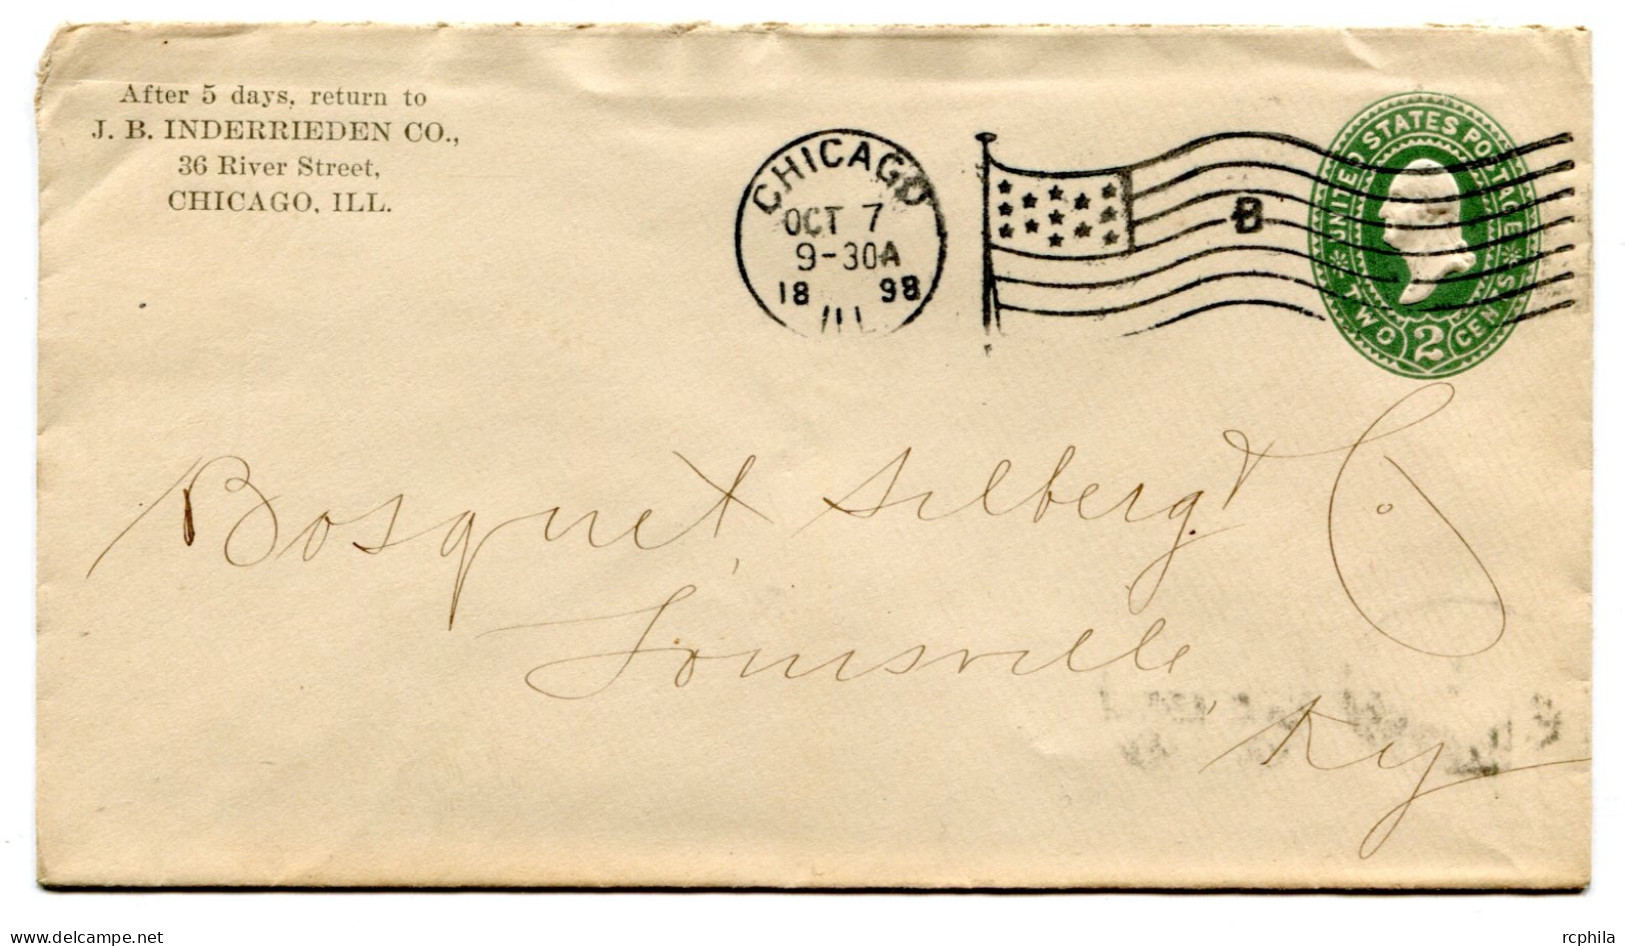 After 5 days, return to
J. B. INDERRIEDEN CO.,
36 River Street,
CHICAGO, ILL.
CHICAGO
OCT 7
9-30A
18 98
ILL.
B
UNITED STATES POSTAGE
TWO 2 CENTS
Bosquet Silberg & Co.
Louisville
Ky
delcampe.net
rcphila